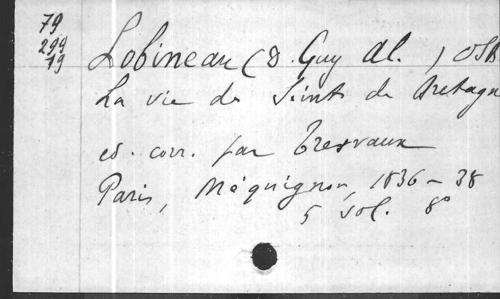 79
299
19
Lobineau (D. Guy Al.) OSB
La vie des Saints de Bretagne
ed. corr. par Tresvaux
Paris, Méquignon, 1836-38
5 vol. 8°